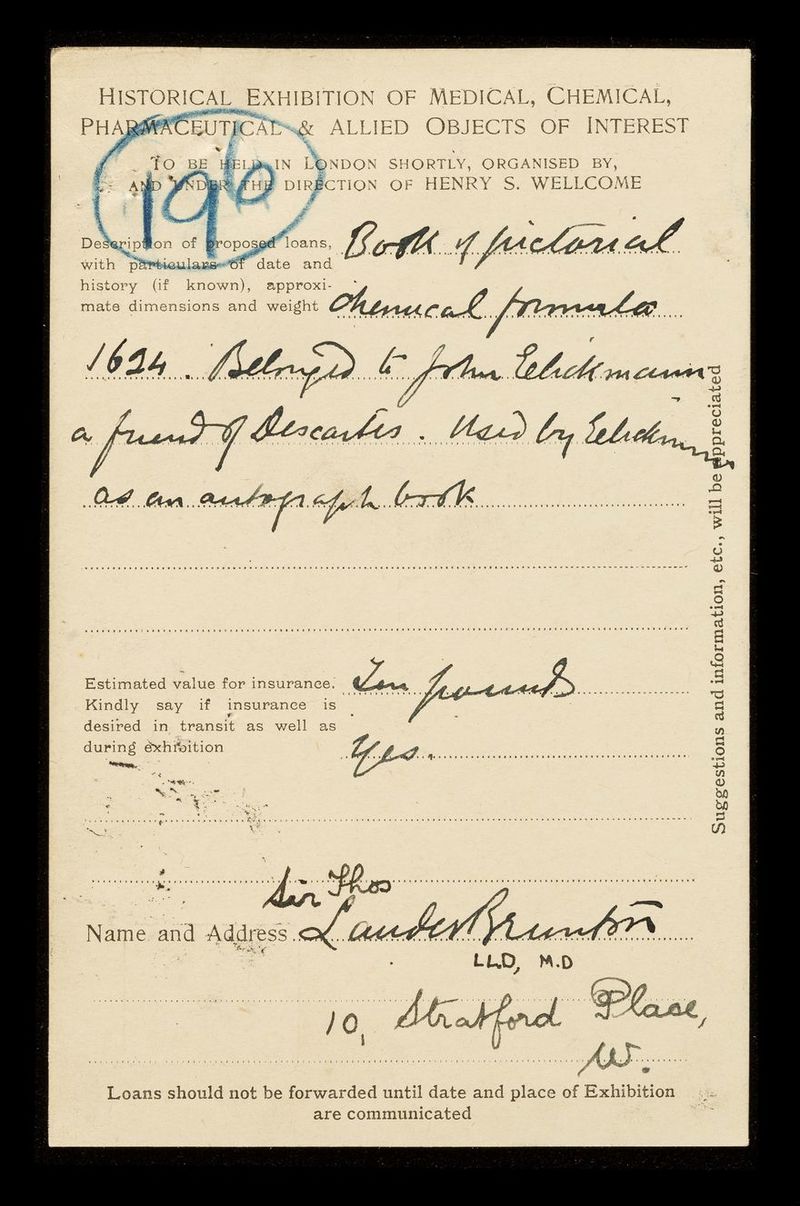 HISTORICAL EXHIBITION OF MEDICAL, CHEMICAL,
PHARMACEUTICAL & ALLIED OBJECTS OF INTEREST
TO BE HELD IN LONDON SHORTLY, ORGANISED BY,
AND UNDER THE DIRECTION OF HENRY S. WELLCOME
196
Description of proposed loans,
with particulars of date and
history (if known), approxi-
mate dimensions and weight
Book of pictorial
chemical formulae
1624. Belonged to John Elichmann
a friend of Descartes. Used by Elichmann
as an autograph book
Estimated value for insurance.
Kindly say if insurance is
desired in transit as well as
during exhibition
Ten pounds
Yes.
Sir Thos
Name and Address Lauder Brunton
LLD, M.D
10, Stratford Place,
W.
Loans should not be forwarded until date and place of Exhibition
are communicated
Suggestions and information, etc., will be appreciated